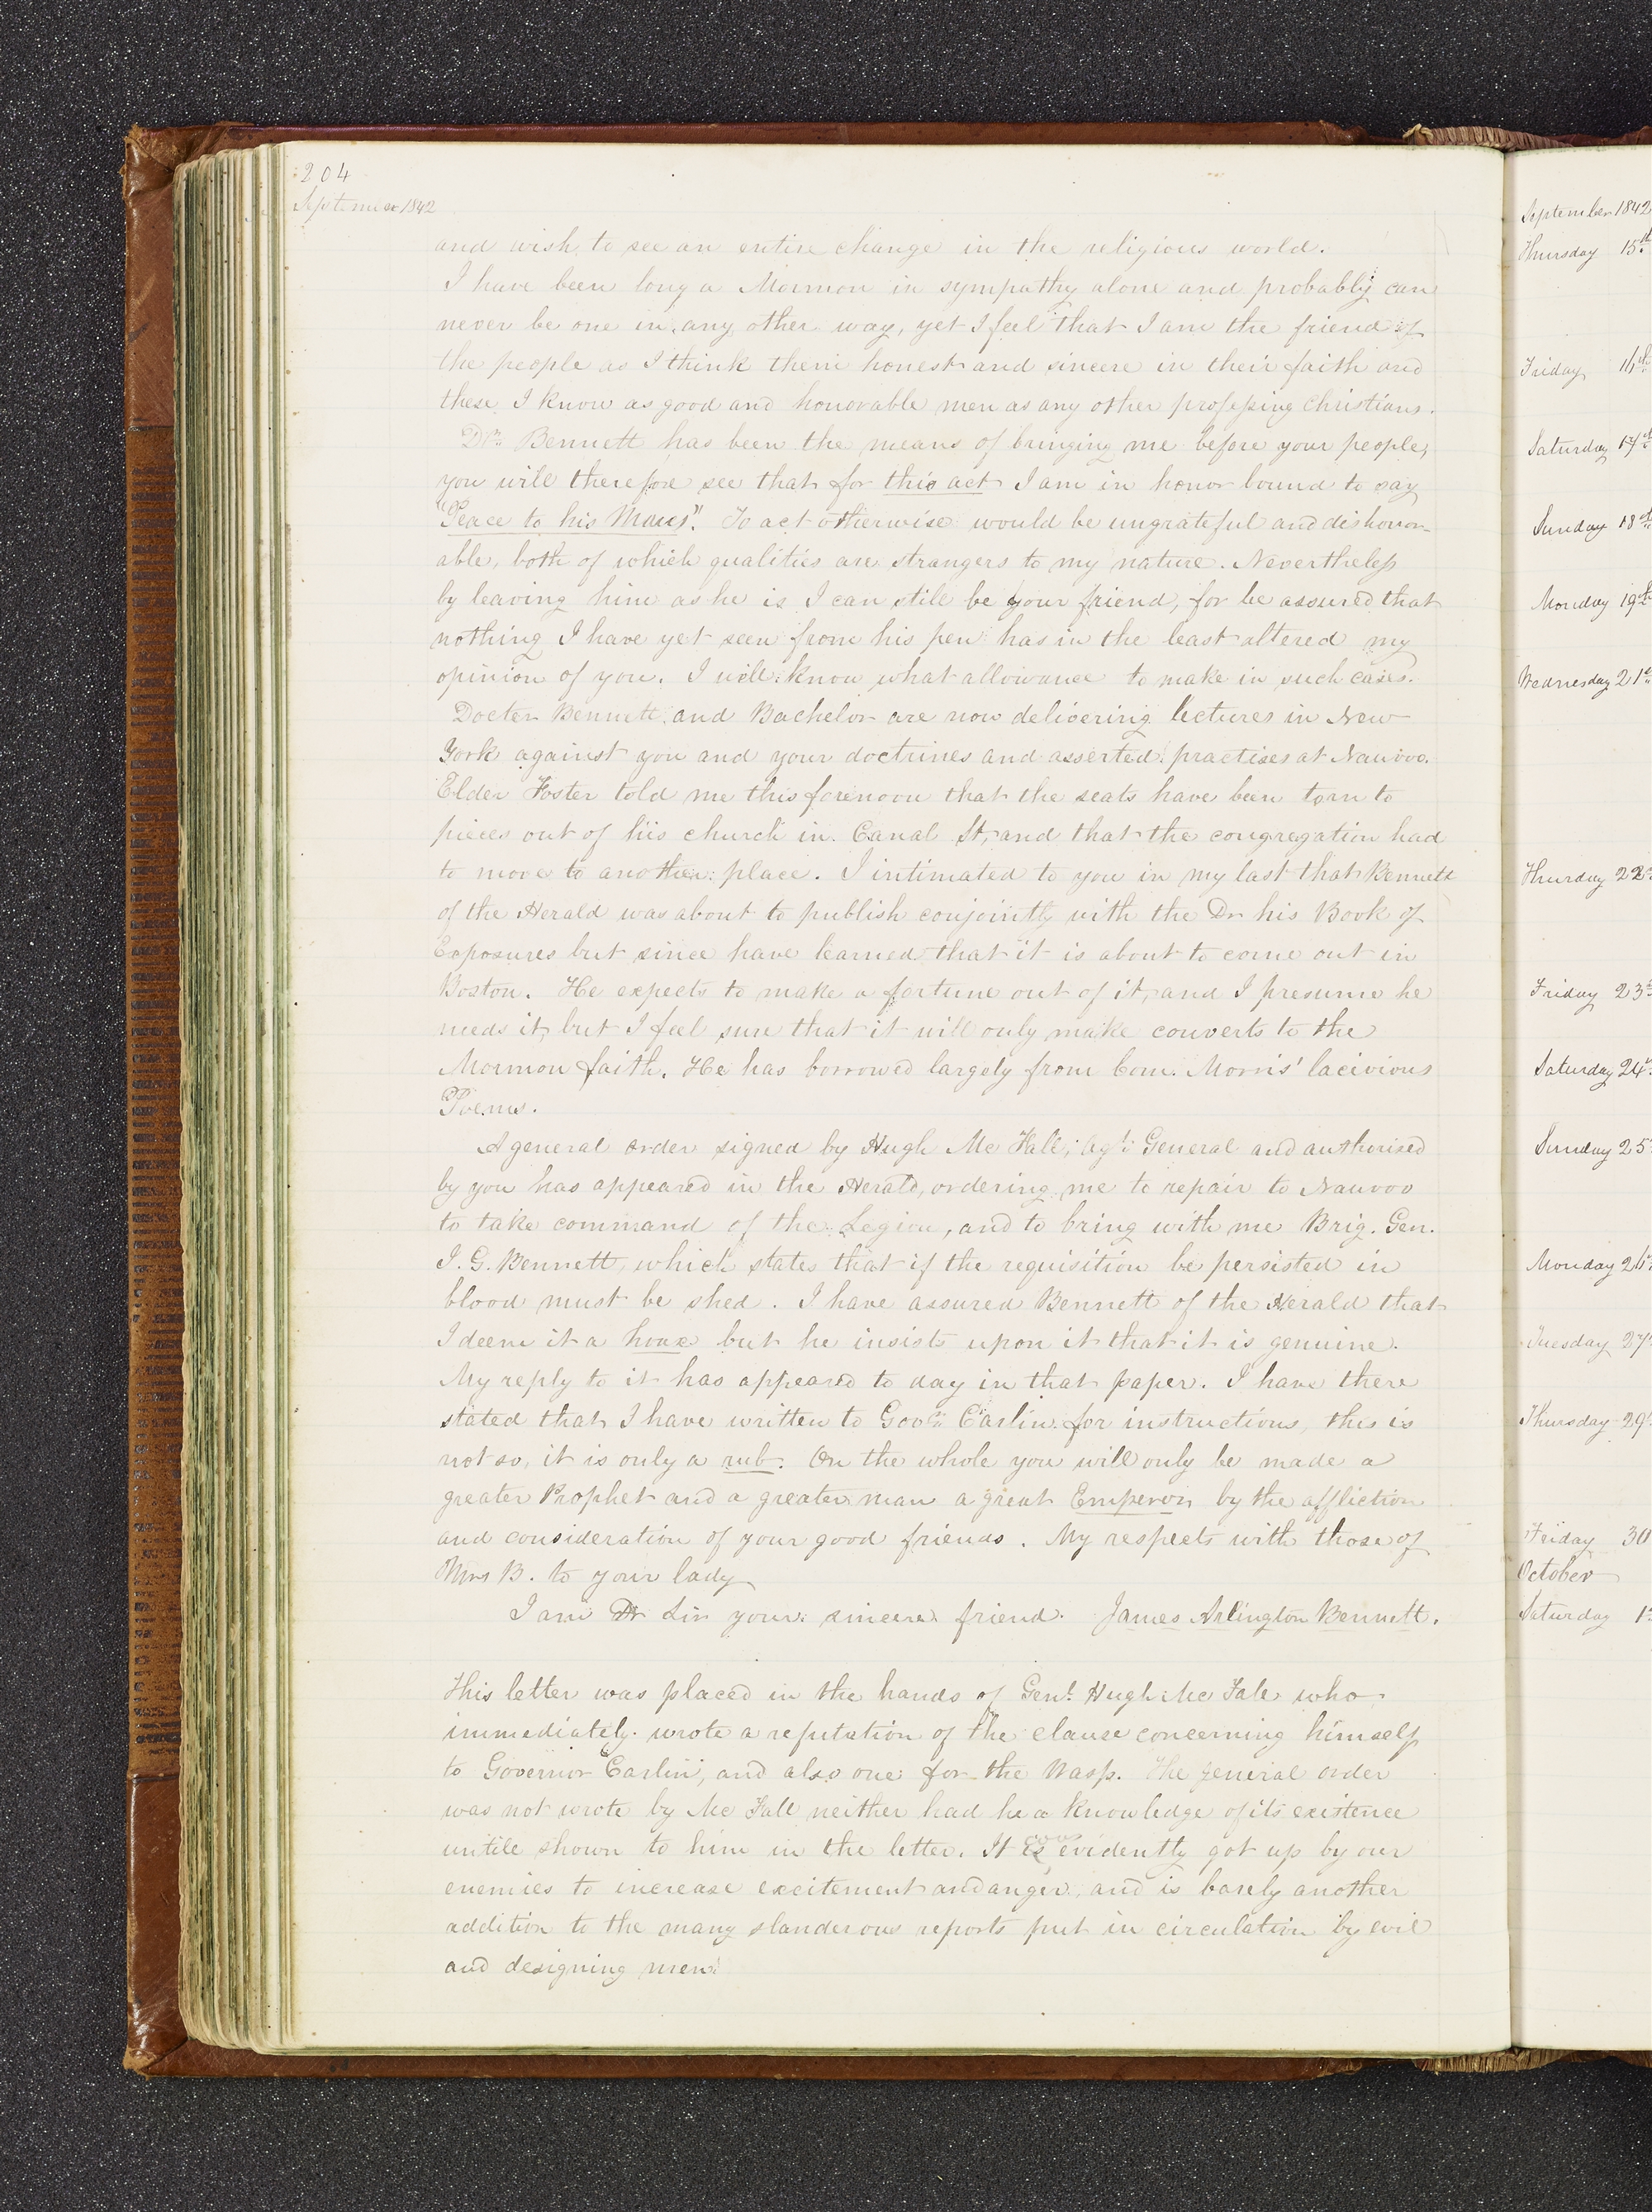 204
September 1842
and wish to see an entire change in the religious world.
I have been long a Mormon in sympathy alone and probably can
never be one in any other way, yet I feel that I am the friend of
the people as I think them honest and sincere in their faith and
these I know as good and honorable men as any other professing Christians.
Dr. Bennett has been the means of bringing me before your people,
you will therefore see that for this act I am in honor bound to say
"Peace to his Manes". To act otherwise would be ungrateful and dishonor-
able, both of which qualities are strangers to my nature. Nevertheless
by leaving him as he is I can still be your friend, for be assured that
nothing I have yet seen from his pen has in the least altered my
opinion of you. I well know what allowance to make in such cases.
Docter Bennett and Bachelor are now delivering lectures in New
York against you and your doctrines and asserted practises at Nauvoo.
Elder Foster told me this forenoon that the seats have been torn to
pieces out of his church in Canal St, and that the congregation had
to move to another place. I intimated to you in my last that Bennett
of the Herald was about to publish conjointly with the Dr his Book of
Exposures but since have learned that it is about to come out in
Boston. He expects to make a fortune out of it, and I presume he
needs it, but I feel sure that it will only make converts to the
Mormon faith. He has borrowed largely from Com. Morris' lacivious
Poems.
A general order signed by Hugh Mc Fall, Agt. General and authorised
by you has appeared in the Herald, ordering me to repair to Nauvoo
to take command of the Legion, and to bring with me Brig. Gen.
J. G. Bennett, which states that if the requisition be persisted in
blood must be shed. I have assured Bennett of the Herald that
I deem it a hoax but he insists upon it that it is genuine.
My reply to it has appeared to day in that paper. I have there
stated that I have written to Govr. Carlin for instructions, this is
not so, it is only a rub. On the whole you will only be made a
greater Prophet and a greater man a great Emperor by the affliction
and consideration of your good friends. My respects with those of
Mrs B. to your lady
I am Dr Sir your sincere friend. James Arlington Bennett.
This letter was placed in the hands of Genl. Hugh Mc Fall who
immediately wrote a reputation of the clause concerning himself
to Governor Carlin, and also one for the Wasp. The general order
was not wrote by Mc Fall neither had he a knowledge of its existence
untill shown to him in the letter. It was evidently got up by our
enemies to increase excitement and anger, and is barely another
addition to the many slanderous reports put in circulation by evil
and designing men.
September 1842
Thursday 15th
Friday 16th
Saturday 17th
Sunday 18th
Monday 19th
Wednesday 21
Thursday 22
Friday 23
Saturday 24
Sunday 25
Monday 26
Tuesday 27
Thursday 29
Friday 30
October
Saturday 1